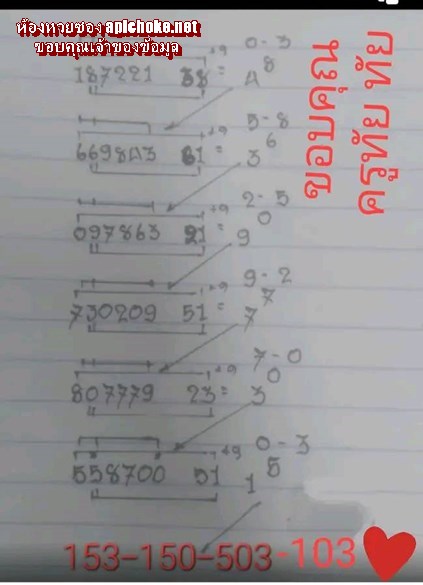 ห้องหวยซอง apichoke.net
ขอบคุณเจ้าของข้อมุล
ขอบคุณ
ครูทัย ทัย
+9 0-3
187221 38 = 8
4
+9 5-8
669843 61 = 6
3
+9 2-5
097863 21 = 0
9
+9 9-2
730209 51 = 7
7
+9 7-0
807779 23 = 0
3
+9 0-3
558700 51 5
1
153-150-503-103